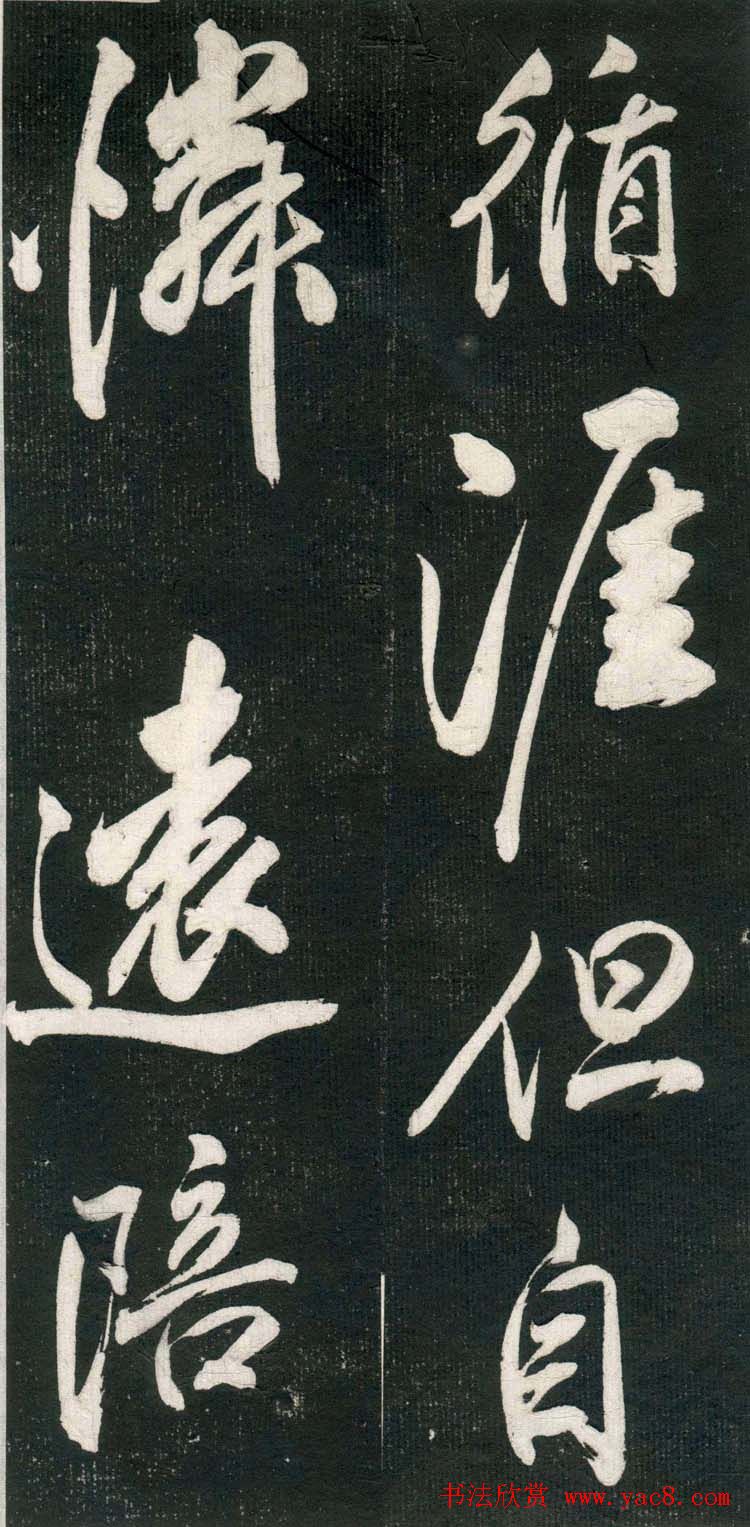 循涯但自
憐遠陪
书法欣赏 www.yac8.com